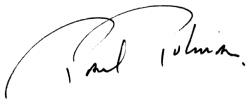 Paul Polman